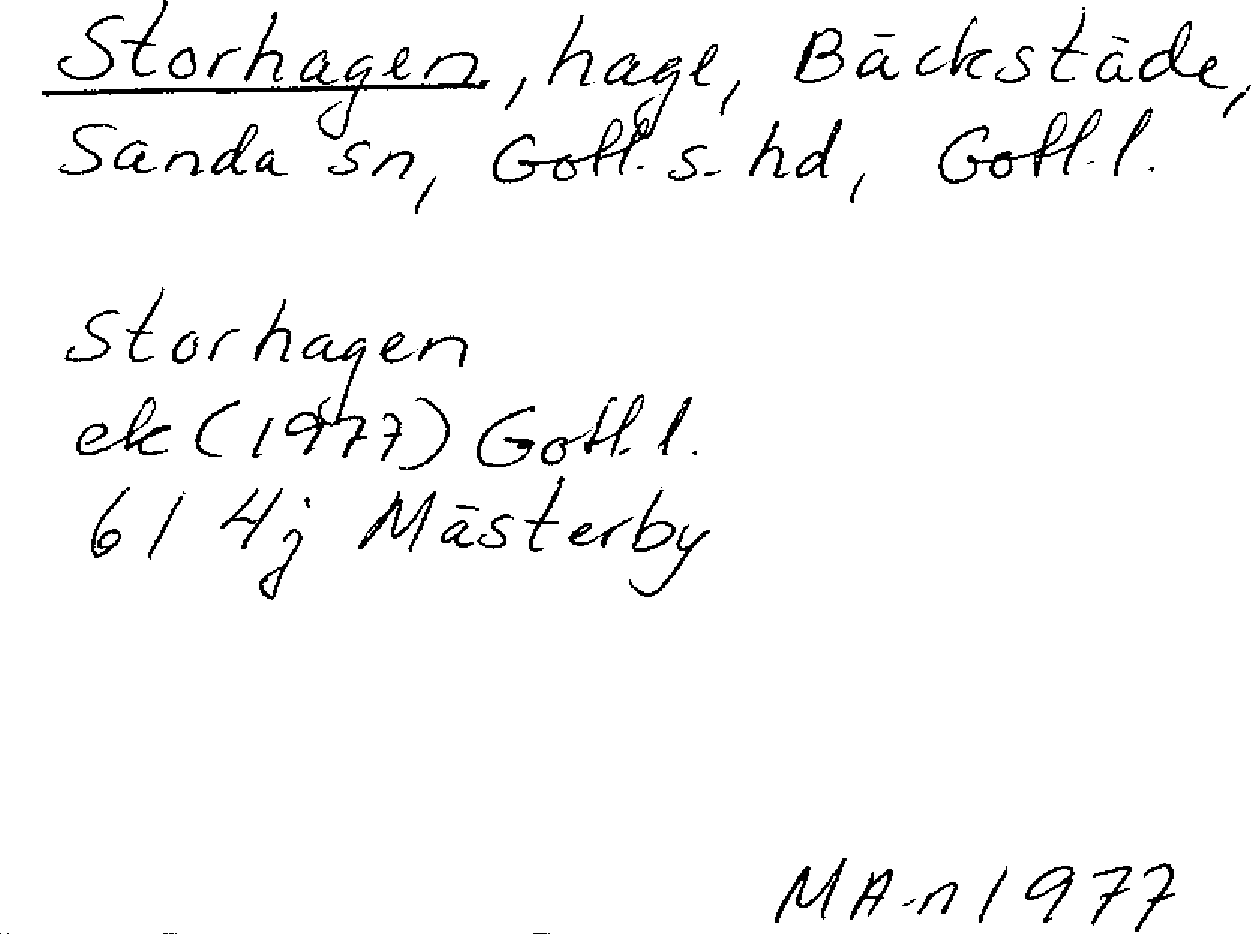 Storhagen, hage, Bäckstäde,
Sanda sn, Gotl. s. hd, Gotl. l.
Storhagen
ek (1977) Gotl. l.
6I 4j Mästerby
MA-n 1977